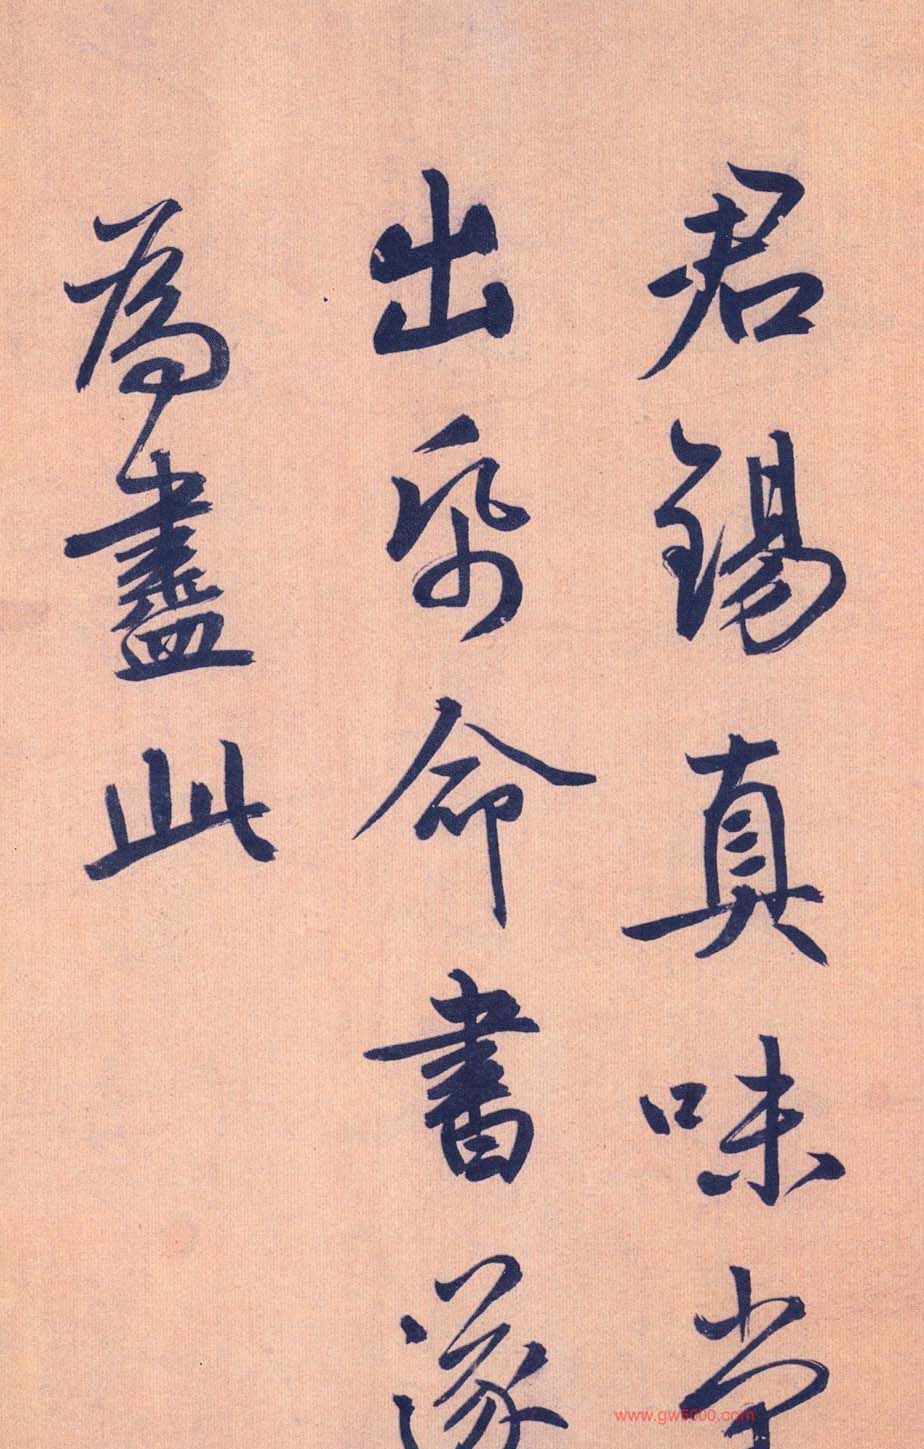 君錫真味堂
出帋命書遂
為盡此
www.gw5000.com